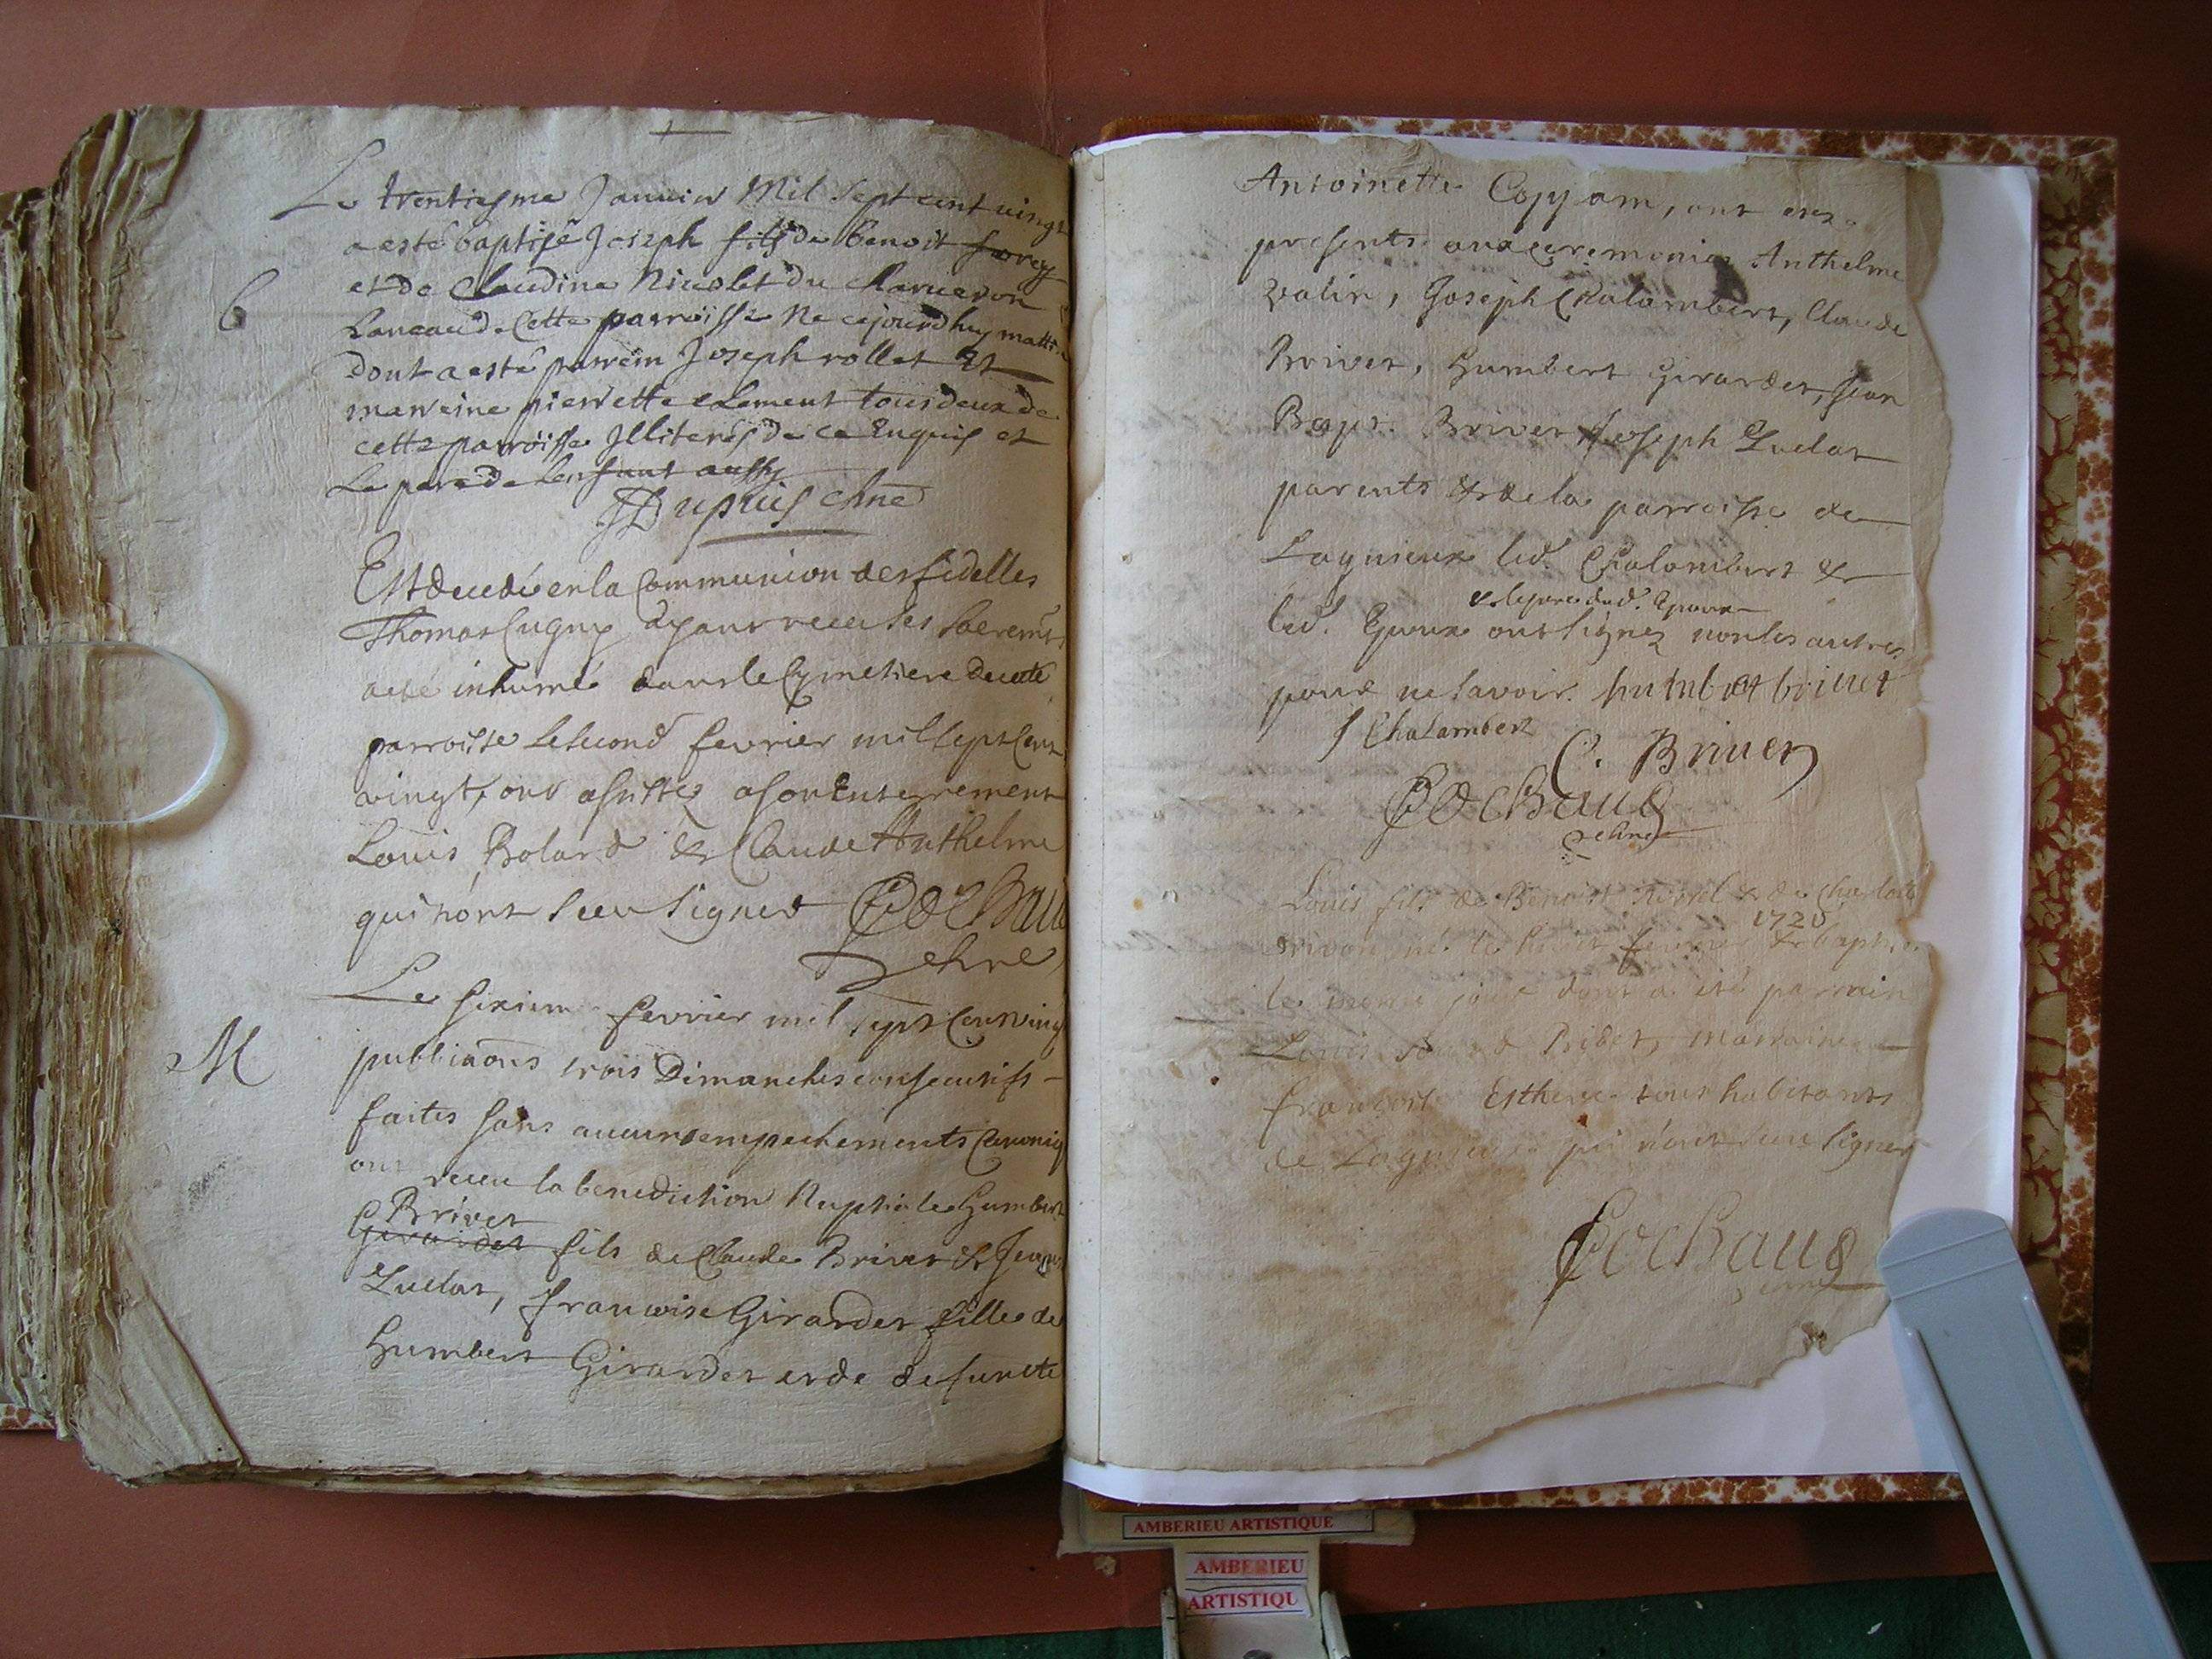 Le trentiesme Janvier Mil sept cent vingt
a esté baptisé Joseph fils de Benoit forey
B
et de Claudine Nicolet du
de cette parroisse Ne cejourdhuy matti
dont a esté parrein Joseph rollet Et
marreine pierrette clement tous deux de
cette parroisse Illiterés de ce Enquis et
Le pere de lenfant aussy
Dupuis chne
Est decedé en la Communion des fidelles
Thomas Cugny ayant receu les sacremts
a eté inhumé dans le Cymetiere de cette
parroisse le second fevrier mil sept Cent
vingt, ont assistéz a son Enterrement
Louis Bolard & Claude Anthelme
qui n'ont sceu signer Cochaud
chne
Le sixiem fevrier mil sept Cent vingt
M
publicaons trois Dimanches consecutifs
faites sans aucuns empechements Canoniq
ont receu la benediction Nuptiale Humbert
Brivet
Girardet fils de Claude Brivet & Jeanne
Luclat, francoise Girardet fille de
Humbert Girardet et de defuncte
Antoinette Coppam, ont etez
presents aux ceremonies Anthelme
Valin, Joseph Chalambert, Claude
Brivet, Humbert Girardet, Jean
Bapt. Brivet, Joseph Luclat
parents & de la parroisse de
Lagnieux led. Chalombert &
& le pere dud. Epoux
led. Epoux ont signez non les autres
pour ne savoir. humbert brivet
J Chalambert
C. Brivet
Cochaud
chne
Louis fils de Benoist & de Charlotte
1720
né le fevrier & bapt.
le meme jour dont a été parrain
Louis marraine
francoise Esthere tous habitants
de Lagnieu qui n'ont sceu signer
Cochaud
chne
AMBERIEU ARTISTIQUE
AMBERIEU
ARTISTIQU